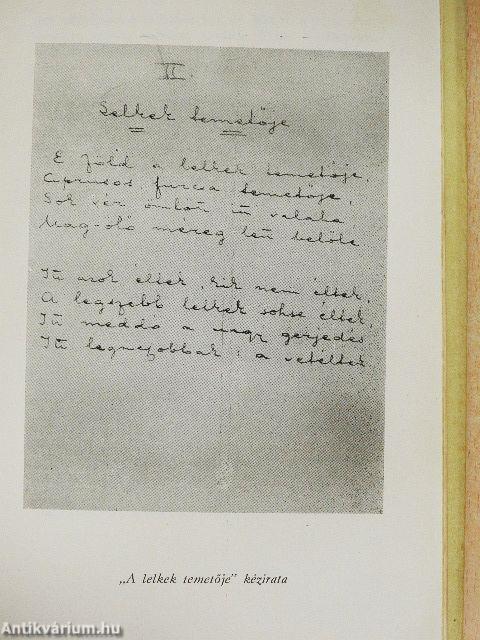 II.
Lelkek temetője
E föld a lelkek temetője,
Ciprusos, furcsa temetője,
Sok vér omlott itt valaha
Mag-ölő méreg lett belőle.
Itt azok éltek, kik nem éltek,
A legszebb lelkek sohse éltek,
Itt meddő a nagy gerjedés
Itt legnagyobbak: a vetéltek
„A lelkek temetője” kézirata
Antikvárium.hu